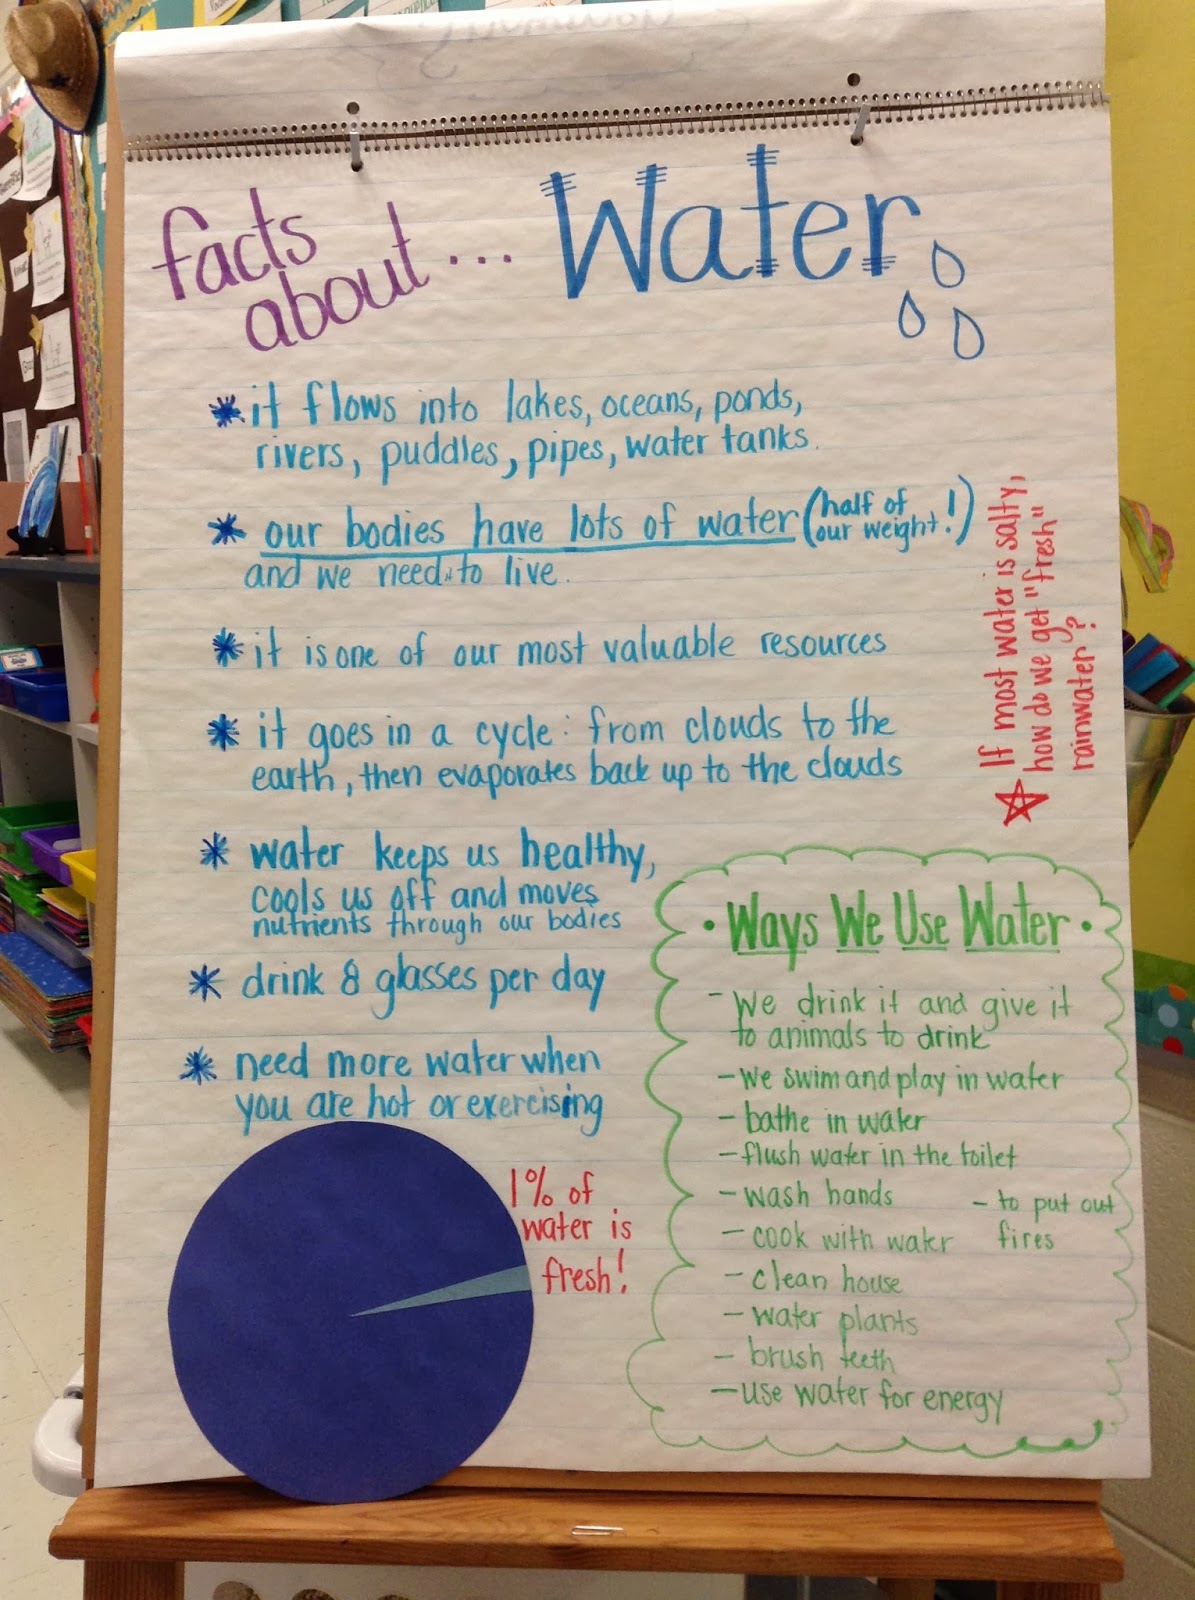 facts
about...
Water
* it flows into lakes, oceans, ponds,
rivers, puddles, pipes, water tanks.
* our bodies have lots of water (half of
our weight!)
and we need to live.
* it is one of our most valuable resources
* it goes in a cycle: from clouds to the
earth, then evaporates back up to the clouds
* water keeps us healthy,
cools us off and moves
nutrients through our bodies
* drink 8 glasses per day
* need more water when
you are hot or exercising
1% of
water is
fresh!
☆ If most water is salty,
how do we get "fresh"
rainwater?
• Ways We Use Water •
- we drink it and give it
to animals to drink
- we swim and play in water
- bathe in water
- flush water in the toilet
- wash hands
- to put out
fires
- cook with water
- clean house
- water plants
- brush teeth
- use water for energy